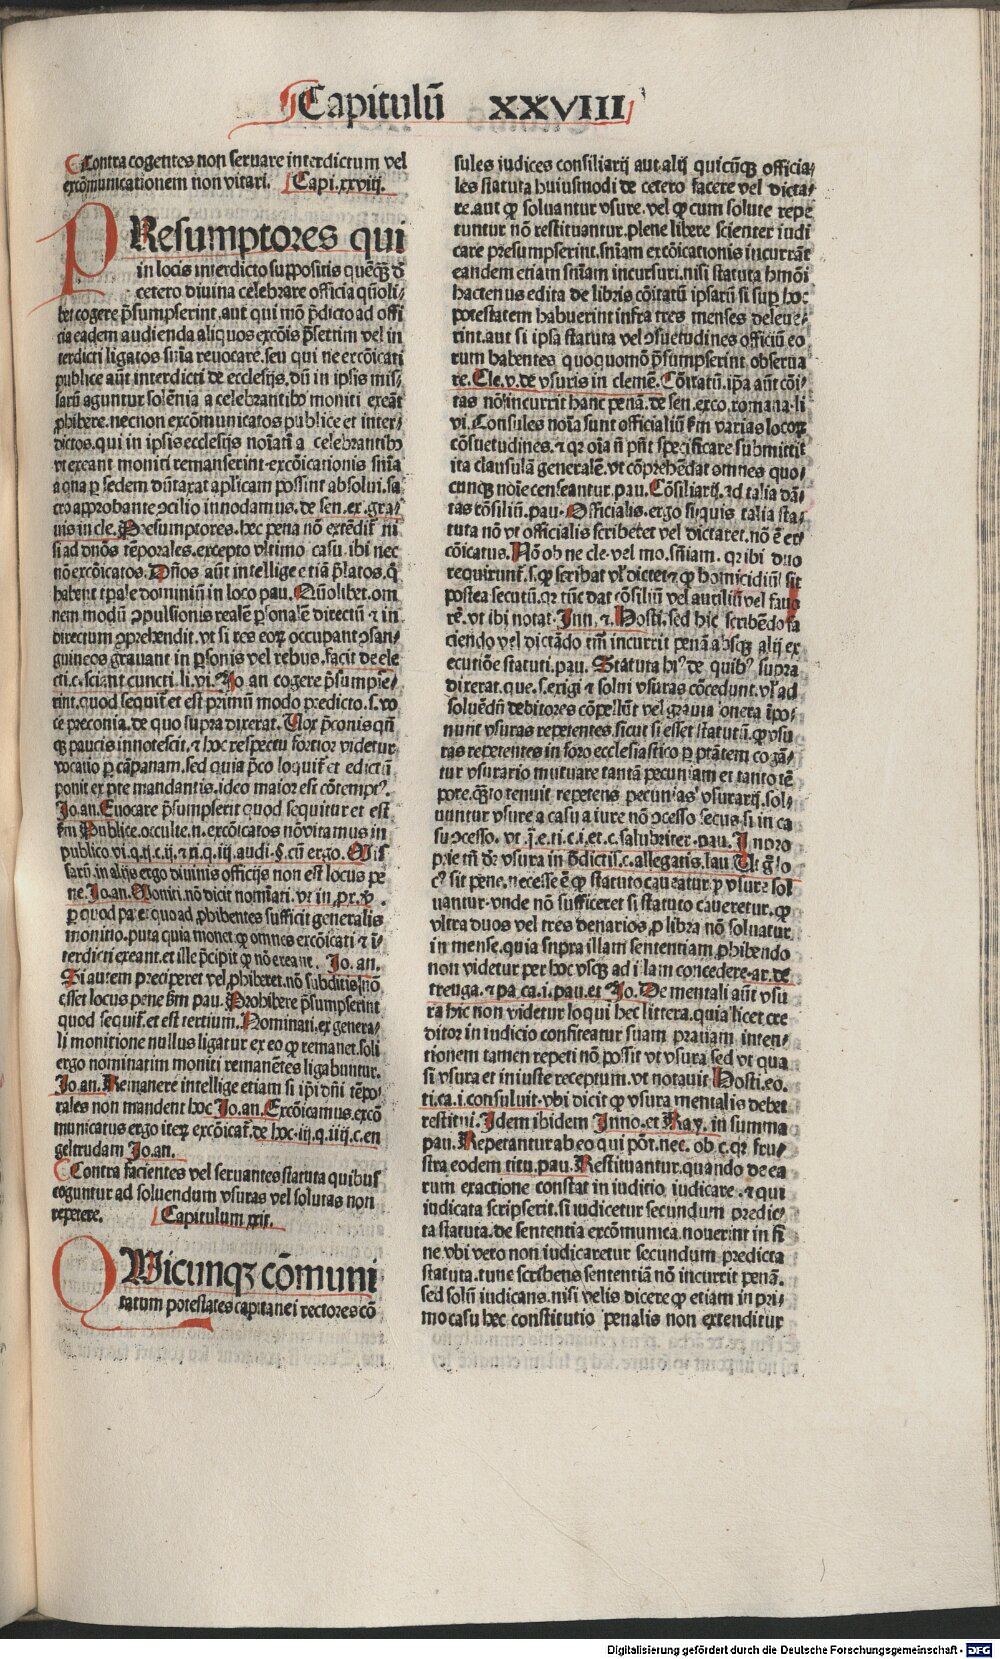 Capitulū XXVIII
Contra cogentes non seruare interdictum vel
excōmunicationem non vitari. Capi. xxviij.
PResumptores qui
in locis interdicto suppositis quēqꝫ d̄
cetero diuina celebrare officia qūoli/
bet cogere p̄sumpserint. aut qui mō p̄dicto ad offi
cia eadem audienda aliquos excōis p̄sertim vel in
terdicti ligatos sn̄ia reuocare. seu qui ne excōicati
publice aūt interdicti de ecclesijs, dū in ipsis mis/
sarū aguntur solēnia a celebrantibꝰ moniti exeāt
ꝓhibere. necnon excōmunicatos publice et inter/
dictos. qui in ipsis ecclesijs noīati a celebrantibꝰ
vt exeant moniti remanserint. excōicationis sn̄ia
a qua ꝑ sedem dūtaxat aplicam possint absolui. sa
cro approbante ↄcilio innodamus. de sen. ex. gra/
uis in cle. Presumptores. hec pena nō extēdit̄ ni
si ad dn̄os tēporales. excepto vltimo casu. ibi nec
nō excōicatos. Dn̄os aūt intellige etiā p̄latos. q̄
habent tp̄ale dominiū in loco pau. Qūolibet. om
nem modū ↄpulsionis realē ꝑsonalē directū ⁊ in
directum ↄprehendit. vt si res eoꝝ occupant ↄsan/
guineos grauant in ꝑsonis vel rebus. facit de ele
cti. c. sciant cuncti. li. vi. Jo. an cogere p̄sumpse/
rint. quod sequit̄ et est primū modo predicto. s. vo
ce preconia. de quo supra dixerat. Vox p̄conis qn̄
qꝫ paucis innotescit. ⁊ hoc respectu fortior videtur
vocatio ꝑ cāpanam. sed quia p̄co loquit̄ et edictū
ponit ex ꝑte mandantis. ideo maior est cōtemptꝰ.
Jo. an. Euocare p̄sumpserit quod sequitur et est
scd̄m Publice. occulte. n. excōicatos nō vitamus in
publico. vi. q. ij. c. ij. ⁊ ij. q. iij. audi. §. cū ergo. Mis
sarū. in alijs ergo diuinis officijs non est locus pe
ne. Jo. an. Moniti. nō dicit nomīati. vt in
ꝑ quod patet quo ad ꝓhibentes sufficit generalis
monitio. puta quia monet ꝙ omnes excōicati ⁊ ī/
terdicti exeant. et ille p̄cipit ꝙ nō exeant. Jo. an.
Si autem preciperet vel ꝓhiberet. nō subditis. nō
esset locus pene scd̄m pau. Prohibere p̄sumpserint
quod sequit̄. et est tertium. Nominati. ex genera/
li monitione nullus ligatur ex eo ꝙ remanet. soli
ergo nominatim moniti remanētes ligabuntur.
Jo. an. Remanere intellige etiam si ip̄i dn̄i tēpo/
rales non mandent hoc Jo. an. Excōicamus. excō
municatus ergo iteꝝ excōicat̄. de hoc. iij. q. iiij. c. en
geltrudam Jo. an.
Contra facientes vel seruantes statuta quibus
coguntur ad soluendum vsuras vel solutas non
repetere. Capitulum xxix.
QVicunqꝫ cōmuni
tatum potestates capitanei rectores cō
sules iudices consiliarij aut alij quicūqꝫ officia/
les statuta huiusmodi de cetero facere vel dicta/
re. aut ꝙ soluantur vsure. vel ꝙ cum solute repe
tuntur nō restituantur. plene libere scienter iudi
care presumpserint. sn̄iam excōicationis incurrāt
eandem etiam sn̄iam incursuri. nisi statuta hmōi
hactenus edita de libris cōitatū ipsarū si suꝑ hoc
potestatem habuerint infra tres menses deleue/
rint. aut si ipsa statuta vel ↄsuetudines officiū eo
rum habentes quoquomō p̄sumpserint obserua
re. Cle. v. de vsuris in clemē. Cōitatū. ip̄a aūt cōi/
tas nō incurrit hanc penā. de sen. exco. romana. li
vi. Consules noīa sunt officialiū scd̄m varias locoꝝ
cōsuetudines. ⁊ qꝛ oīa nō pn̄t specificare submittit
ita clausulā generalē. vt cōprehēdat omnes quo/
cunqꝫ noīe censeantur. pau. Cōsiliarij. ad talia dā/
tas cōsiliū. pau. Officialis. ergo si quis talia sta/
tuta nō vt officialis scribetet vel dictaret. nō ē ex
cōicatus. Nō ob ne cle. vel mo. sn̄iam. qꝛ ibi duo
requirunt̄. s. ꝙ scribat vl̓ dictet ⁊ ꝙ homicidiū sit
postea secutū. qꝛ tūc dat cōsiliū vel auxiliū vel fauo
rē. vt ibi notat. Inn. ⁊. Hosti. sed hic scribēdo fa
ciendo vel dictādo tm̄ incurrit penā absqꝫ alij ex
ecutiōe statuti. pau. Statuta hiꝰ de quibꝰ supra
dixerat. que. s. exigi ⁊ solui vsuras cōcedunt. vl̓ ad
soluēdū debitores cōpellūt vel grauia onera īpo/
nunt vsuras repetentes. sicut si esset statutū. ꝙ vsu
ras repetentes in foro ecclesiastico ꝑ ptātem cogā/
tur vsurario mutuare tantā pecuniam et tanto tē
pore. qꝫto tenuit repetens pecunias vsurarij. sol/
uuntur vsure a casu a iure nō ↄcesso secus. si in ca
su ↄcesso. vt. j. e. ni. c. i. et. c. salubriter. pau. Inoro
prie tn̄ dr̄ vsura in p̄dictis. c. allegatis. lau. Vt gͦ lo
cꝰ sit pene. necesse ē ꝙ statuto caueatur. ꝙ vsure sol
uantur. vnde nō sufficeret si statuto caueretur. ꝙ
vltra duos vel tres denarios. ꝓ libra nō soluatur
in mense. quia supra illam sententiam ꝓhibendo
non videtur per hoc vsqꝫ ad illam concedere. ar. de
treuga. ⁊ pa ca. i. pau. et Jo. De mentali aūt vsu
ra hic non videtur loqui hec littera. quia licet cre
ditor in iudicio confiteatur suam prauam inten/
tionem tamen repeti nō possit vt vsura sed vt qua
si vsura et iniuste receptum. vt notauit Hosti. eo.
ti. ca. i. consuluit. vbi dicit ꝙ vsura mentalis debet
restitui. Idem ibidem Inno. et Ray. in summa
pau. Repetantur ab eo qui pōt. nec. ob c. qꝛ fru/
stra. eodem titu. pau. Restituantur. quando de ea
rum exactione constat in iuditio iudicare. ⁊ qui
iudicata scripserit. si iudicetur secundum predic/
ta statuta. de sententia excōmunica. nouerint in fi
ne. vbi vero non iudicaretur secundum predicta
statuta. tunc scribens sententiā nō incurrit penā.
sed solū iudicans. nisi velis dicere ꝙ etiam in pri/
mo casu hec constitutio penalis non extenditur
Digitalisierung gefördert durch die Deutsche Forschungsgemeinschaft - DFG